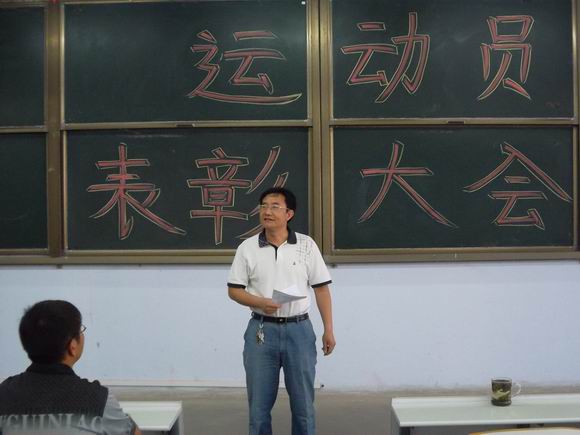 运动员
表彰大会
GUINIAO